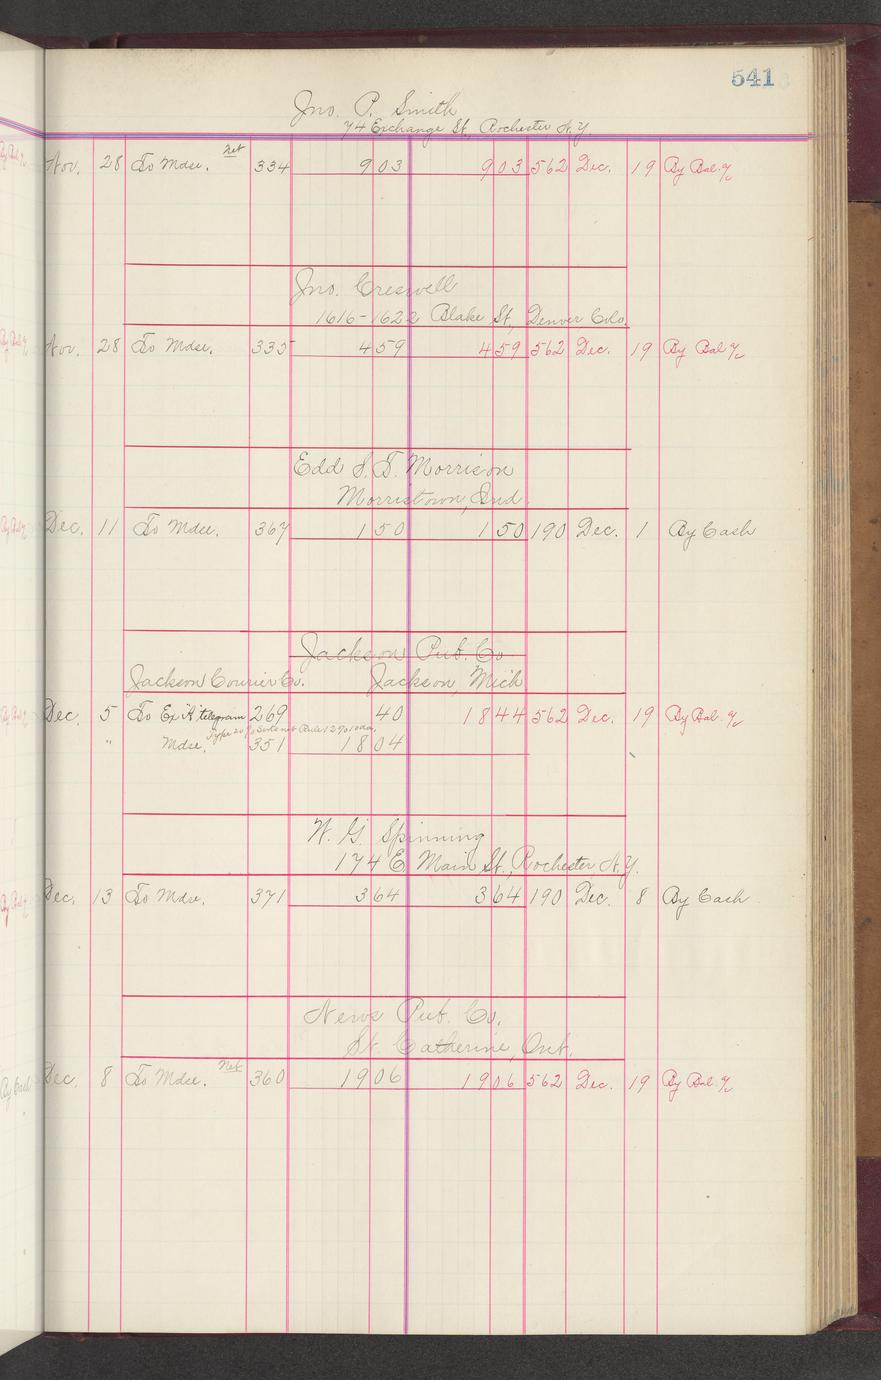 541
Jno. P. Smith
74 Exchange St., Rochester N.Y.
Nov. 28 To Mdse. Net 334 9 03 9 03 562 Dec. 19 By Bal. a/c
Jno. Creswell
1616-1622 Blake St., Denver Colo.
Nov. 28 To Mdse. 335 4 59 4 59 562 Dec. 19 By Bal a/c
Edd S. T. Morrison
Morristown, Ind.
Dec. 11 To Mdse. 367 1 50 1 50 190 Dec. 1 By Cash
Jackson Pub. Co
Jackson Courier Co. Jackson, Mich
Dec. 5 To Ex telegram 269 40 18 44 562 Dec. 19 By Bal. a/c
Type 20% net Rule
" Mdse. 351 18 04
W. G. Spinning
174 E. Main St., Rochester N.Y.
Dec. 13 To Mdse. 371 3 64 3 64 190 Dec. 8 By Cash
News Pub. Co.
St. Catherine, Ont.
Dec. 8 To Mdse. Net 360 19 06 19 06 562 Dec. 19 By Bal. a/c